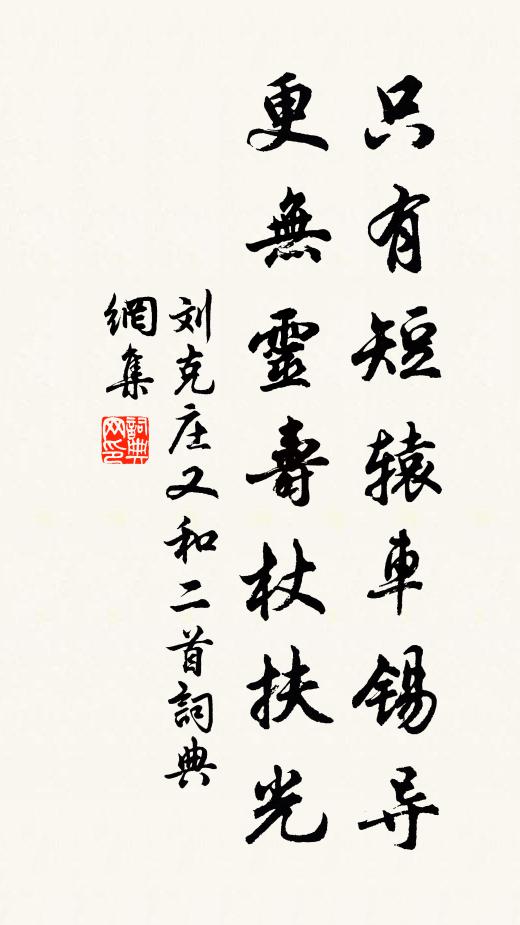 只有短辕車锡导
更無靈壽杖扶光
刘克庄又和二首詞典
網集
詞典网印